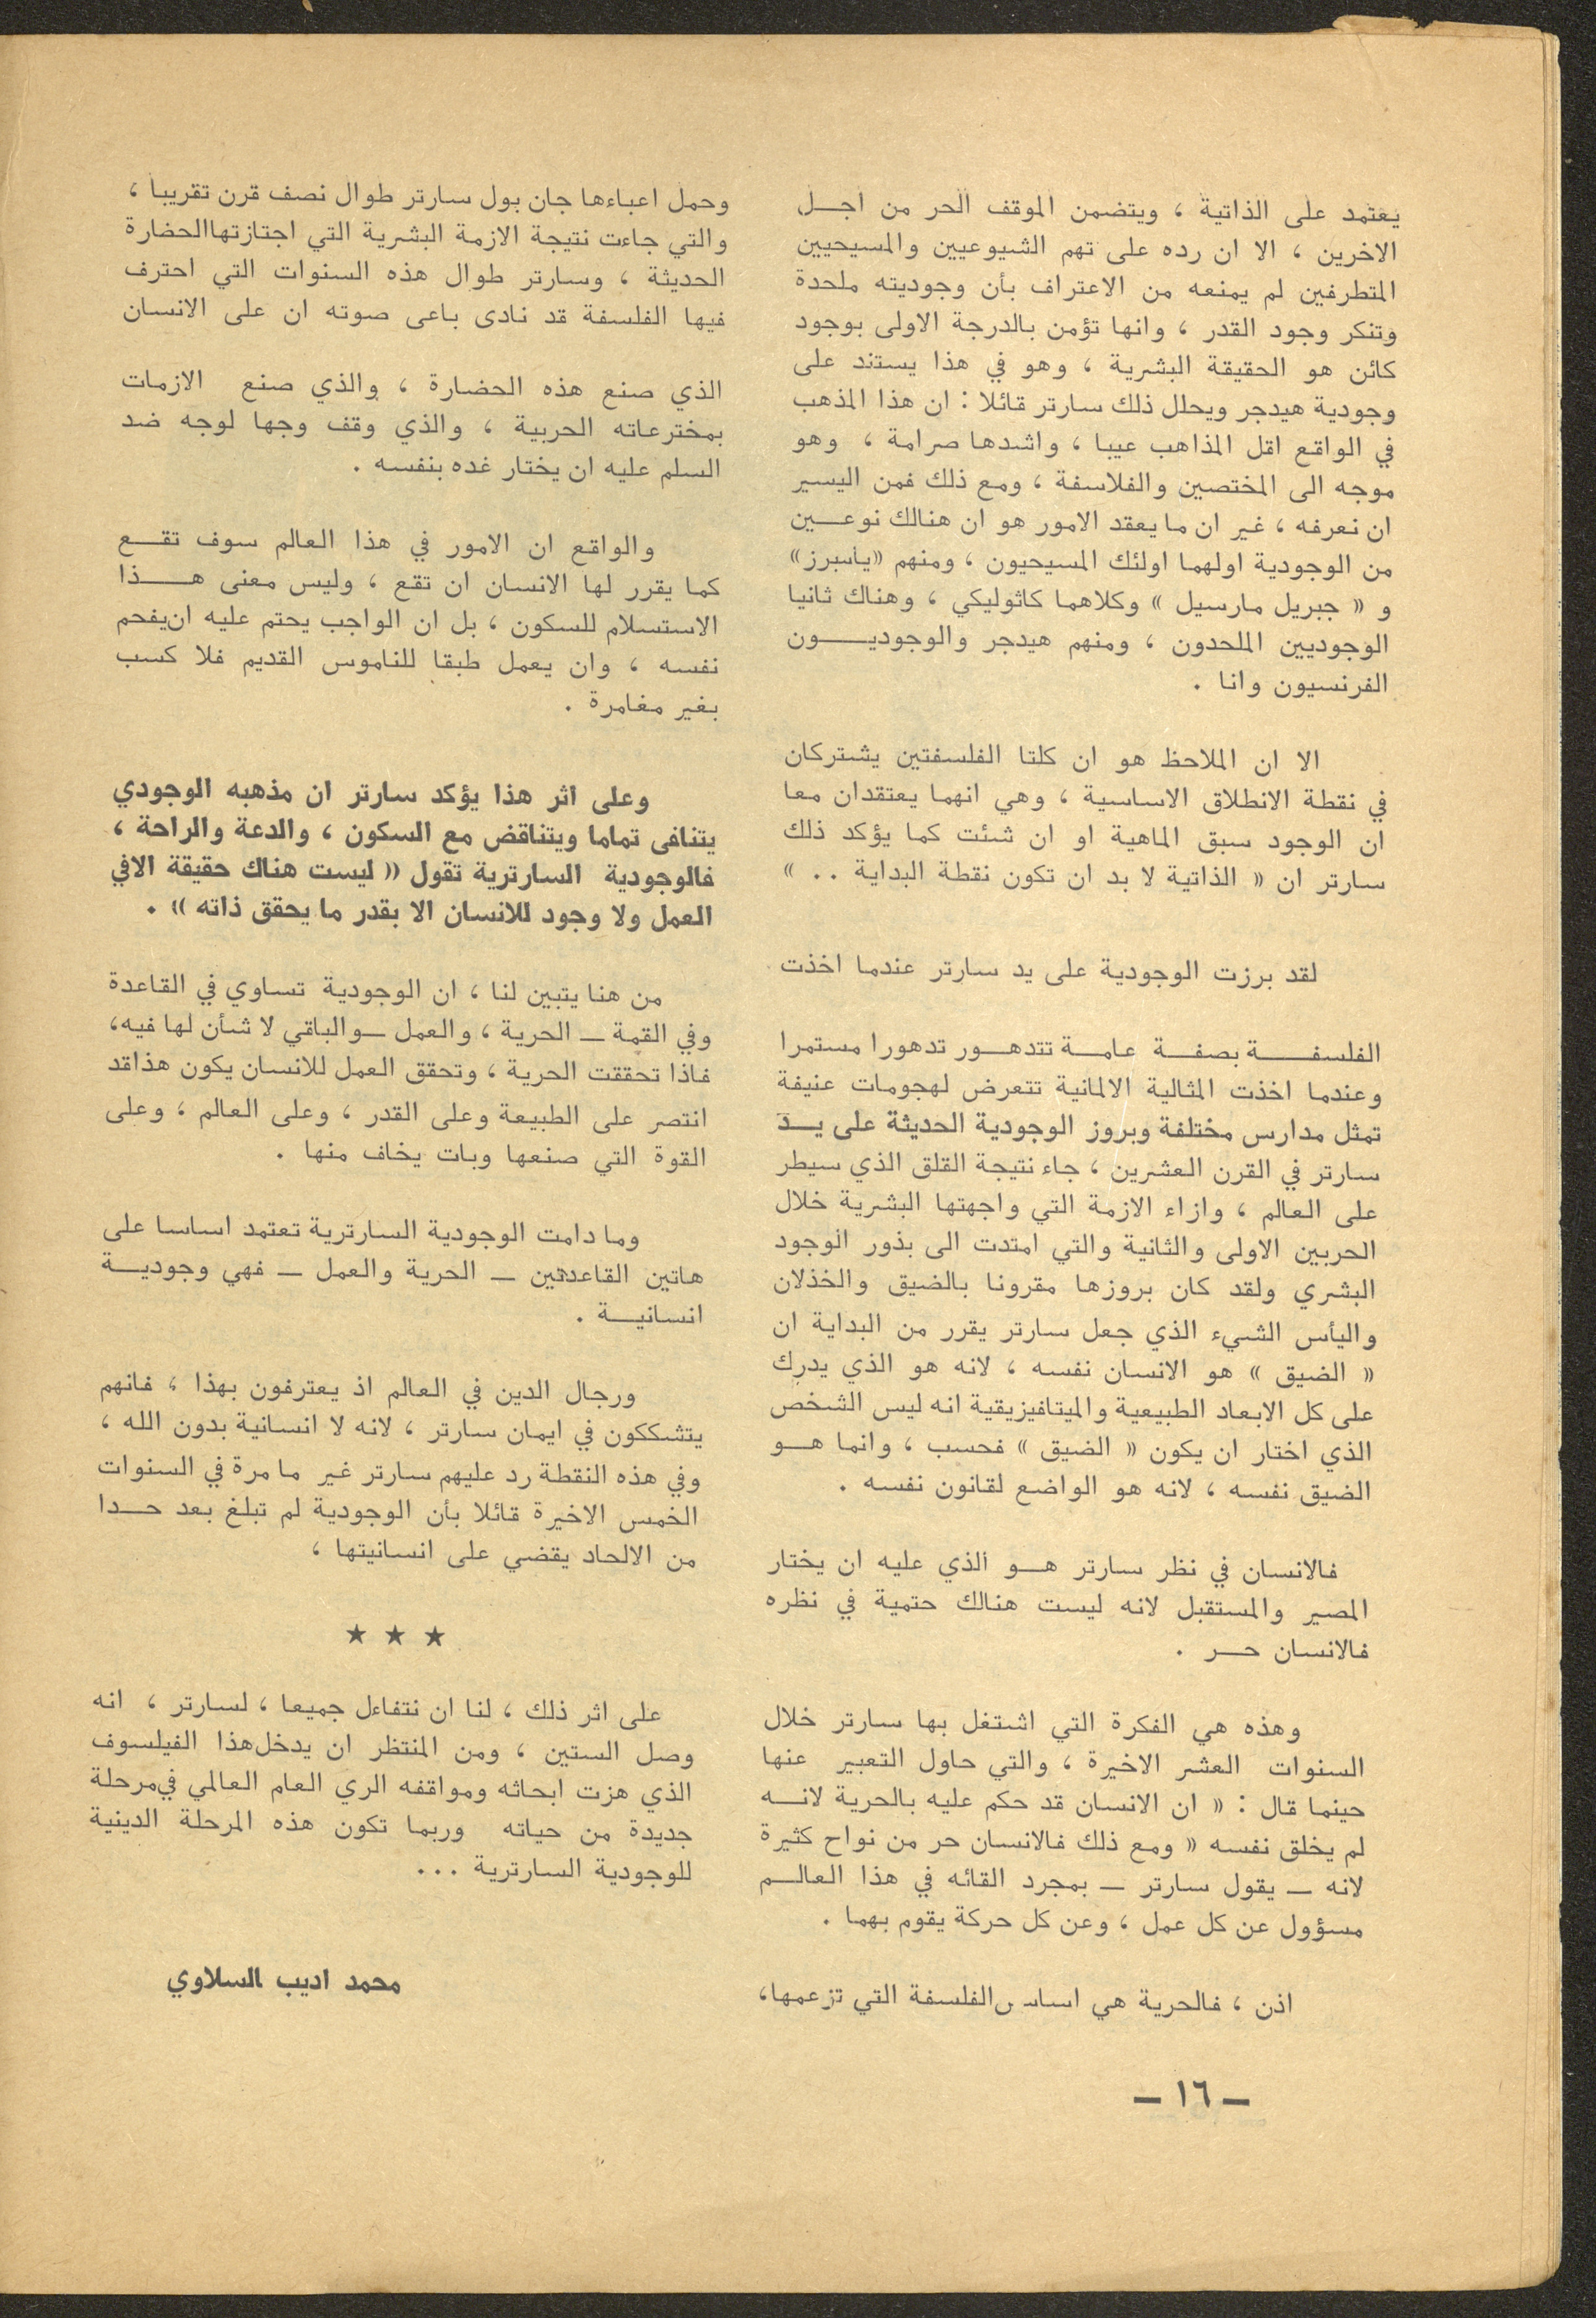 يعتمد على الذاتية ، ويتضمن الموقف الحر من اجـــل
الاخرين ، الا ان رده على تهم الشيوعيين والمسيحيين
المتطرفين لم يمنعه من الاعتراف بأن وجوديته ملحدة
وتنكر وجود القدر ، وانها تؤمن بالدرجة الاولى بوجود
كائن هو الحقيقة البشرية ، وهو في هذا يستند على
وجودية هيدجر ويحلل ذلك سارتر قائلا : ان هذا المذهب
في الواقع اقل المذاهب عيبا ، واشدها صرامة ، وهو
موجه الى المختصين والفلاسفة ، ومع ذلك فمن اليسير
ان نعرفه ، غير ان ما يعقد الامور هو ان هنالك نوعـــين
من الوجودية اولهما اولئك المسيحيون ، ومنهم «ياسبرز»
و « جبريل مارسيل » وكلاهما كاثوليكي ، وهناك ثانيا
الوجوديين الملحدون ، ومنهم هيدجر والوجوديـــــون
الفرنسيون وانا .
الا ان الملاحظ هو ان كلتا الفلسفتين يشتركان
في نقطة الانطلاق الاساسية ، وهي انهما يعتقدان معا
ان الوجود سبق الماهية او ان شئت كما يؤكد ذلك
سارتر ان « الذاتية لا بد ان تكون نقطة البداية . . »
لقد برزت الوجودية على يد سارتر عندما اخذت
الفلسفـــــة بصفـــة عامـــة تتدهـــور تدهورا مستمرا
وعندما اخذت المثالية الالمانية تتعرض لهجومات عنيفة
تمثل مدارس مختلفة وبروز الوجودية الحديثة على يـــد
سارتر في القرن العشرين ، جاء نتيجة القلق الذي سيطر
على العالم ، وازاء الازمة التي واجهتها البشرية خلال
الحربين الاولى والثانية والتي امتدت الى بذور الوجود
البشري ولقد كان بروزها مقرونا بالضيق والخذلان
واليأس الشيء الذي جعل سارتر يقرر من البداية ان
« الضيق » هو الانسان نفسه ، لانه هو الذي يدرك
على كل الابعاد الطبيعية والميتافيزيقية انه ليس الشخص
الذي اختار ان يكون « الضيق » فحسب ، وانما هـــو
الضيق نفسه ، لانه هو الواضع لقانون نفسه .
فالانسان في نظر سارتر هـــو الذي عليه ان يختار
المصير والمستقبل لانه ليست هنالك حتمية في نظره
فالانسان حـــر .
وهذه هي الفكرة التي اشتغل بها سارتر خلال
السنوات العشر الاخيرة ، والتي حاول التعبير عنها
حينما قال : « ان الانسان قد حكم عليه بالحرية لانـــه
لم يخلق نفسه « ومع ذلك فالانسان حر من نواح كثيرة
لانه ــ يقول سارتر ــ بمجرد القائه في هذا العالـــم
مسؤول عن كل عمل ، وعن كل حركة يقوم بهما .
اذن ، فالحرية هي اساس الفلسفة التي تزعمها،
وحمل اعباءها جان بول سارتر طوال نصف قرن تقريبا ،
والتي جاءت نتيجة الازمة البشرية التي اجتازتهاالحضارة
الحديثة ، وسارتر طوال هذه السنوات التي احترف
فيها الفلسفة قد نادى باعى صوته ان على الانسان
الذي صنع هذه الحضارة ، والذي صنع الازمات
بمخترعاته الحربية ، والذي وقف وجها لوجه ضد
السلم عليه ان يختار غده بنفسه .
والواقع ان الامور في هذا العالم سوف تقـــع
كما يقرر لها الانسان ان تقع ، وليس معنى هـــــذا
الاستسلام للسكون ، بل ان الواجب يحتم عليه ان يفحم
نفسه ، وان يعمل طبقا للناموس القديم فلا كسب
بغير مغامرة .
وعلى اثر هذا يؤكد سارتر ان مذهبه الوجودي
يتنافى تماما ويتناقض مع السكون ، والدعة والراحة ،
فالوجودية السارترية تقول « ليست هناك حقيقة الافي
العمل ولا وجود للانسان الا بقدر ما يحقق ذاته » .
من هنا يتبين لنا ، ان الوجودية تساوي في القاعدة
وفي القمة ــ الحرية ، والعمل ــ والباقي لا شأن لها فيه،
فاذا تحققت الحرية ، وتحقق العمل للانسان يكون هذاقد
انتصر على الطبيعة وعلى القدر ، وعلى العالم ، وعلى
القوة التي صنعها وبات يخاف منها .
وما دامت الوجودية السارترية تعتمد اساسا على
هاتين القاعدتين ــ الحرية والعمل ــ فهي وجوديـــة
انسانيـــة .
ورجال الدين في العالم اذ يعترفون بهذا ، فانهم
يتشككون في ايمان سارتر ، لانه لا انسانية بدون الله ،
وفي هذه النقطة رد عليهم سارتر غير ما مرة في السنوات
الخمس الاخيرة قائلا بأن الوجودية لم تبلغ بعد حـــدا
من الالحاد يقضي على انسانيتها ،
★ ★ ★
على اثر ذلك ، لنا ان نتفاءل جميعا ، لسارتر ، انه
وصل الستين ، ومن المنتظر ان يدخل هذا الفيلسوف
الذي هزت ابحاثه ومواقفه الري العام العالمي في مرحلة
جديدة من حياته وربما تكون هذه المرحلة الدينية
للوجودية السارترية ...
محمد اديب السلاوي
ــ ١٦ ــ